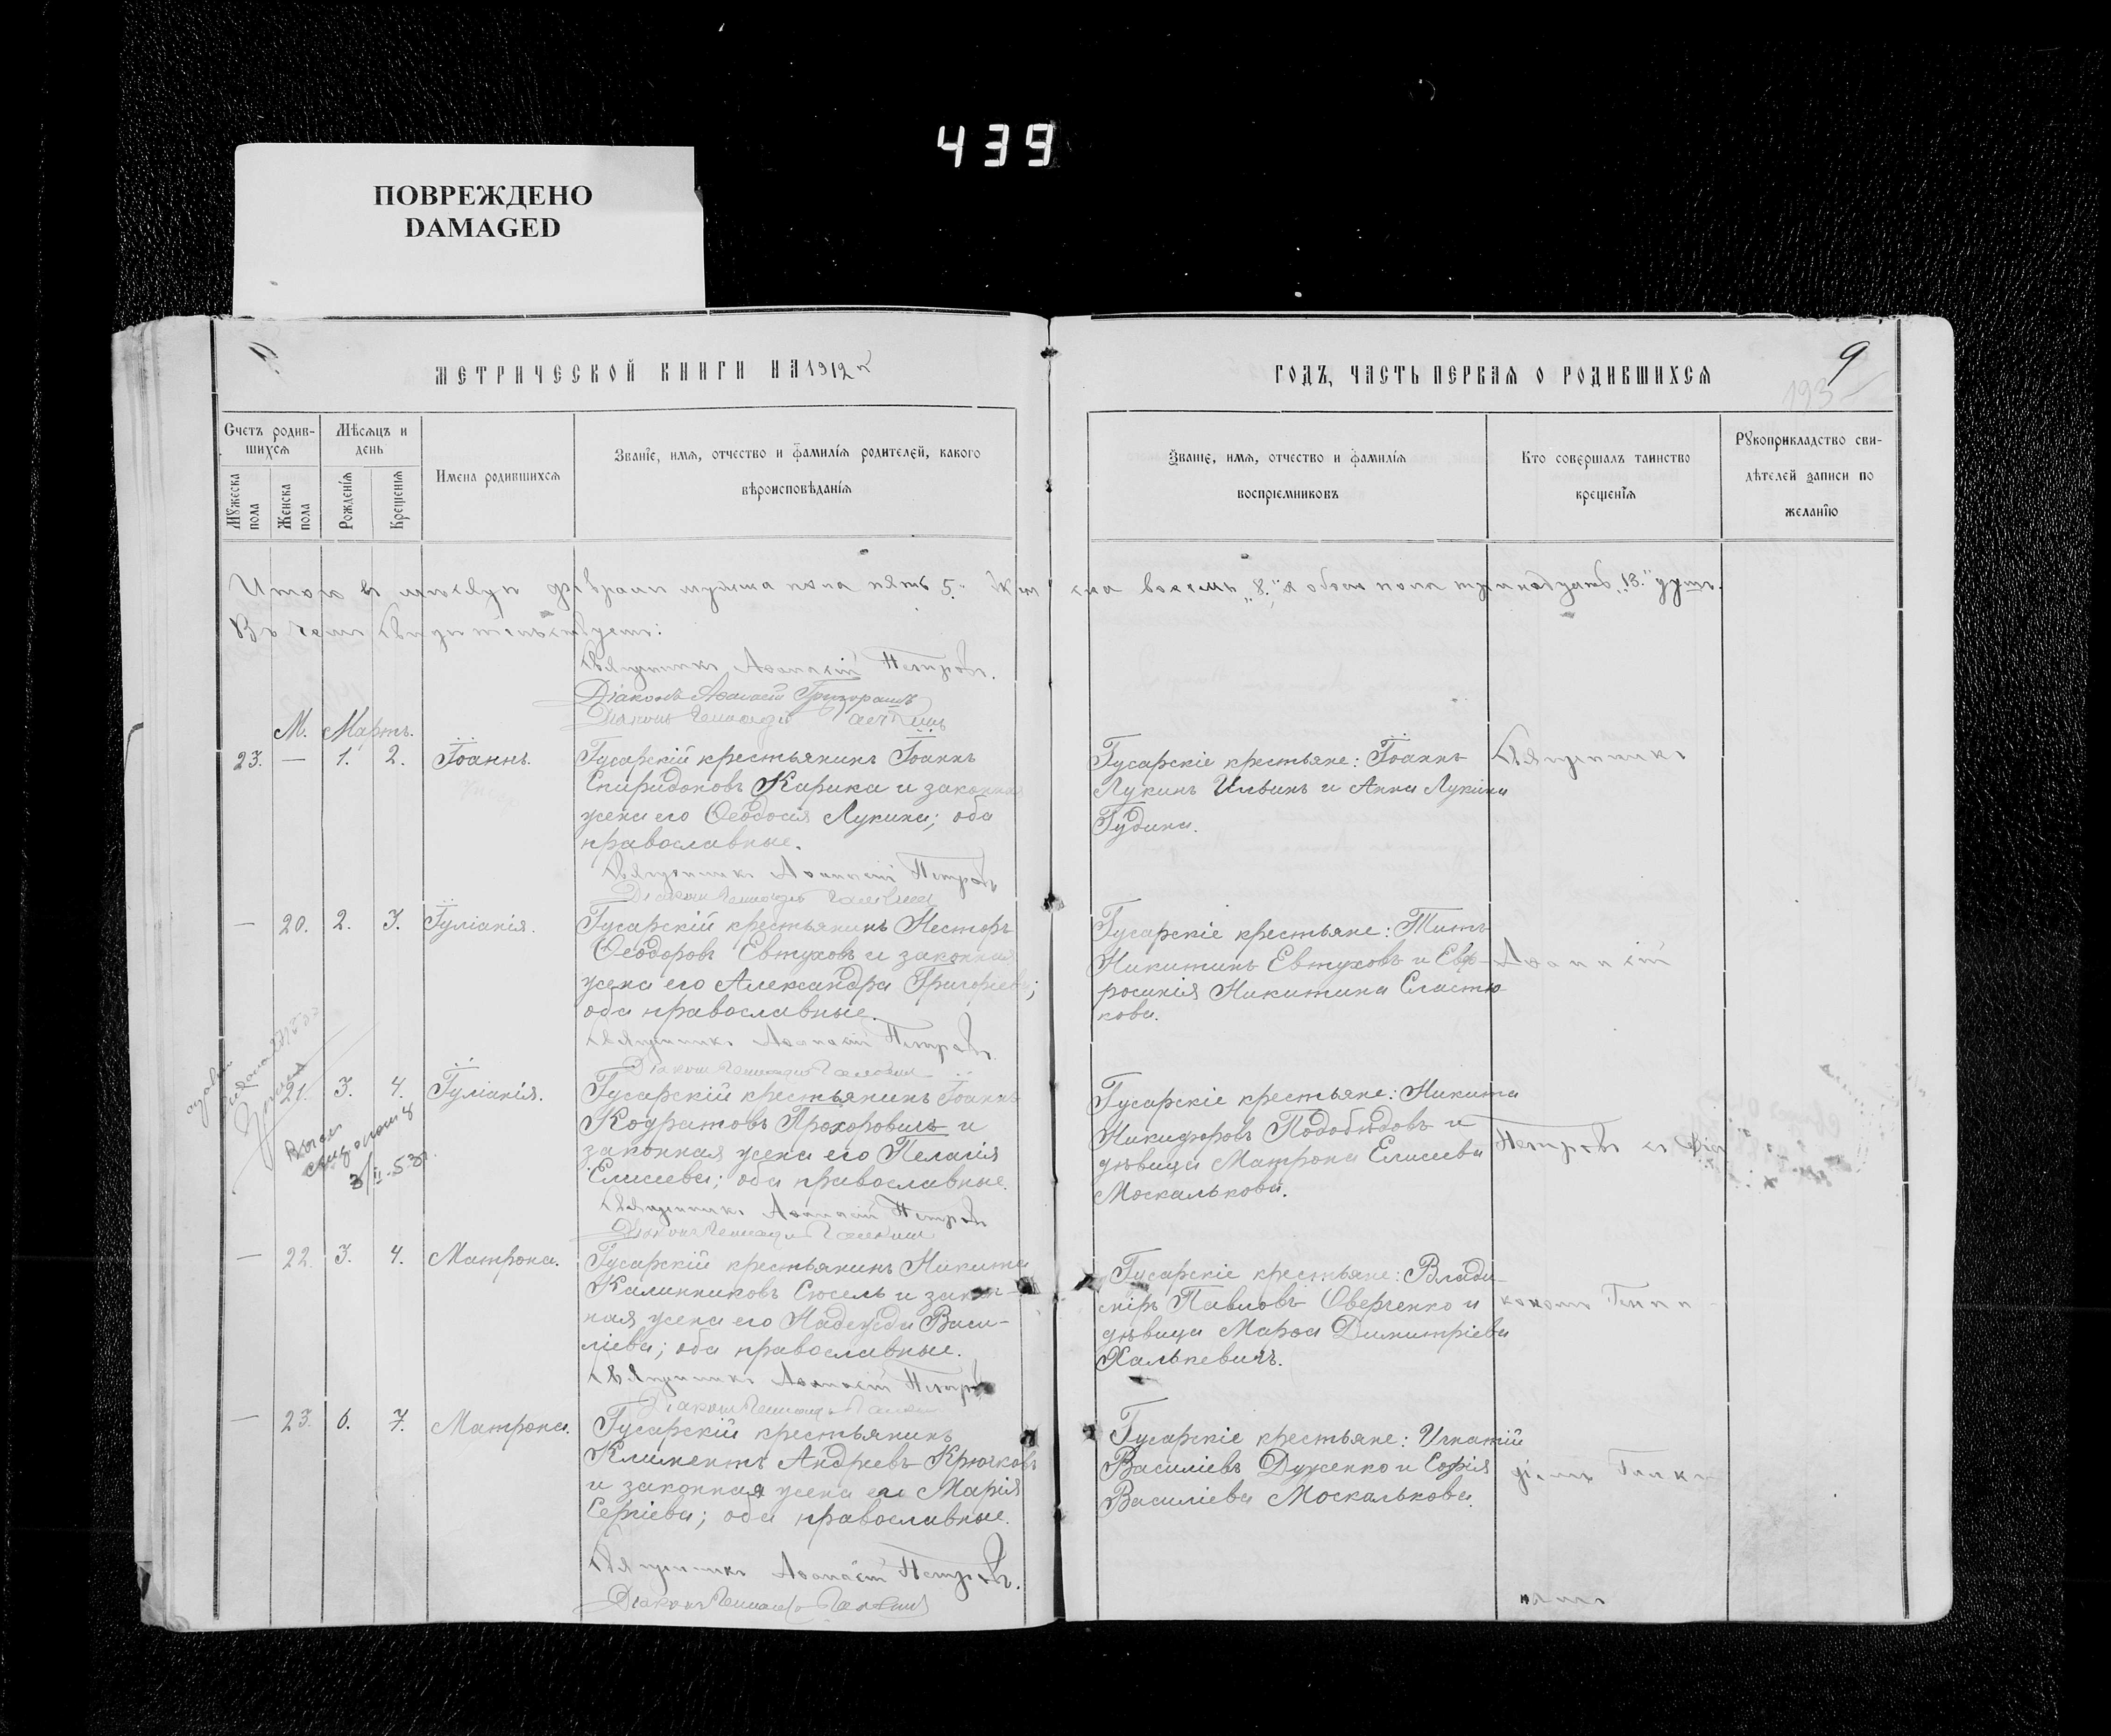 439
ПОВРЕЖДЕНО
DAMAGED
МЕТРИЧЕСКОЙ КНИГИ НА 1912
ГОДЪ, ЧАСТЬ ПЕРВАЯ О РОДИВШИХСЯ
9
193
Счетъ родив-
шихся
Мѣсяцъ и
день
Мужеска
пола
Женска
пола
Рожденія
Крещенія
Имена родившихся
Званіе, имя, отчество и фамилія родителей, какого
вѣроисповѣданія
Званіе, имя, отчество и фамилія
воспріемниковъ
Кто совершалъ таинство
крещенія
Рукоприкладство сви-
дѣтелей записи по
желанію
Итого въ мѣсяцѣ февралѣ мужска пола пять 5. Женска восемь „8.", а обоего пола тринадцать „13." душъ.
Въ чемъ свидѣтельствуемъ:
Священникъ Аѳанасій Петровъ.
Діаконъ
Діаконъ Геннадій
М. Мартъ.
23. — 1. 2. Іоаннъ.
Гусарскій крестьянинъ Іоаннъ
Спиридоновъ Карика и законная
жена его Ѳеодосія Лукина; оба
православные.
Священникъ Аѳанасій Петровъ
Діаконъ Геннадій
Гусарскіе крестьяне: Іоаннъ
Лукинъ Ильинъ и Анна Лукина
Гудина.
Священникъ
— 20. 2. 3. Іуліанія.
Гусарскій крестьянинъ Несторъ
Ѳеодоровъ Евтуховъ и законная
жена его Александра Григоріева;
оба православные.
Священникъ Аѳанасій Петровъ.
Діаконъ Геннадій
Гусарскіе крестьяне: Титъ
Никитинъ Евтуховъ и Евф-
росинія Никитина Сластю-
кова.
Аѳанасій
21. 3. 4. Іуліанія.
3/II-53г.
Гусарскій крестьянинъ Іоаннъ
Кодратовъ Прохоровичъ и
законная жена его Пелагія
Елисеева; оба православные.
Священникъ Аѳанасій Петровъ
Діаконъ Геннадій
Гусарскіе крестьяне: Никита
Никифоровъ Подобѣдовъ и
дѣвица Матрона Елисеева
Москалькова.
Петровъ съ діа
— 22. 3. 4. Матрона.
Гусарскій крестьянинъ Никита
Калинниковъ Сюсель и закон-
ная жена его Надежда Васи-
ліева; оба православные.
Священникъ Аѳанасій Петровъ
Діаконъ Геннадій
Гусарскіе крестьяне: Влади-
міръ Павловъ Оверченко и
дѣвица Марѳа Димитріева
Халькевичъ.
кономъ Генна-
— 23. 6. 7. Матрона.
Гусарскій крестьянинъ
Климентъ Андреевъ Крючковъ
и законная жена его Марія
Сергіева; оба православные.
Священникъ Аѳанасій Петровъ.
Діаконъ Геннадій
Гусарскіе крестьяне: Игнатій
Василіевъ Дуженко и Софія
Василіева Москалькова.
діемъ